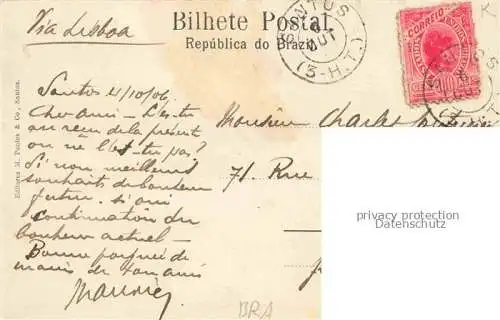 Via Lisboa
Bilhete Postal
República do Brazil
SANTOS
6
OUT
(3-H.T.)
CORREIO
Santos 4/10/06
Cher ami - L'es-tu
au reçu de la présent
ou ne l'es-tu pas?
Si non meilleurs
souhaits de bonheur
futur. si oui
confirmation du
bonheur actuel -
Bonne poignée de
mains de ton ami
Maurice
Monsieur Charles
71. Rue
Editores M. Pontes & Co., Santos.
privacy protection
Datenschutz
BRA
K